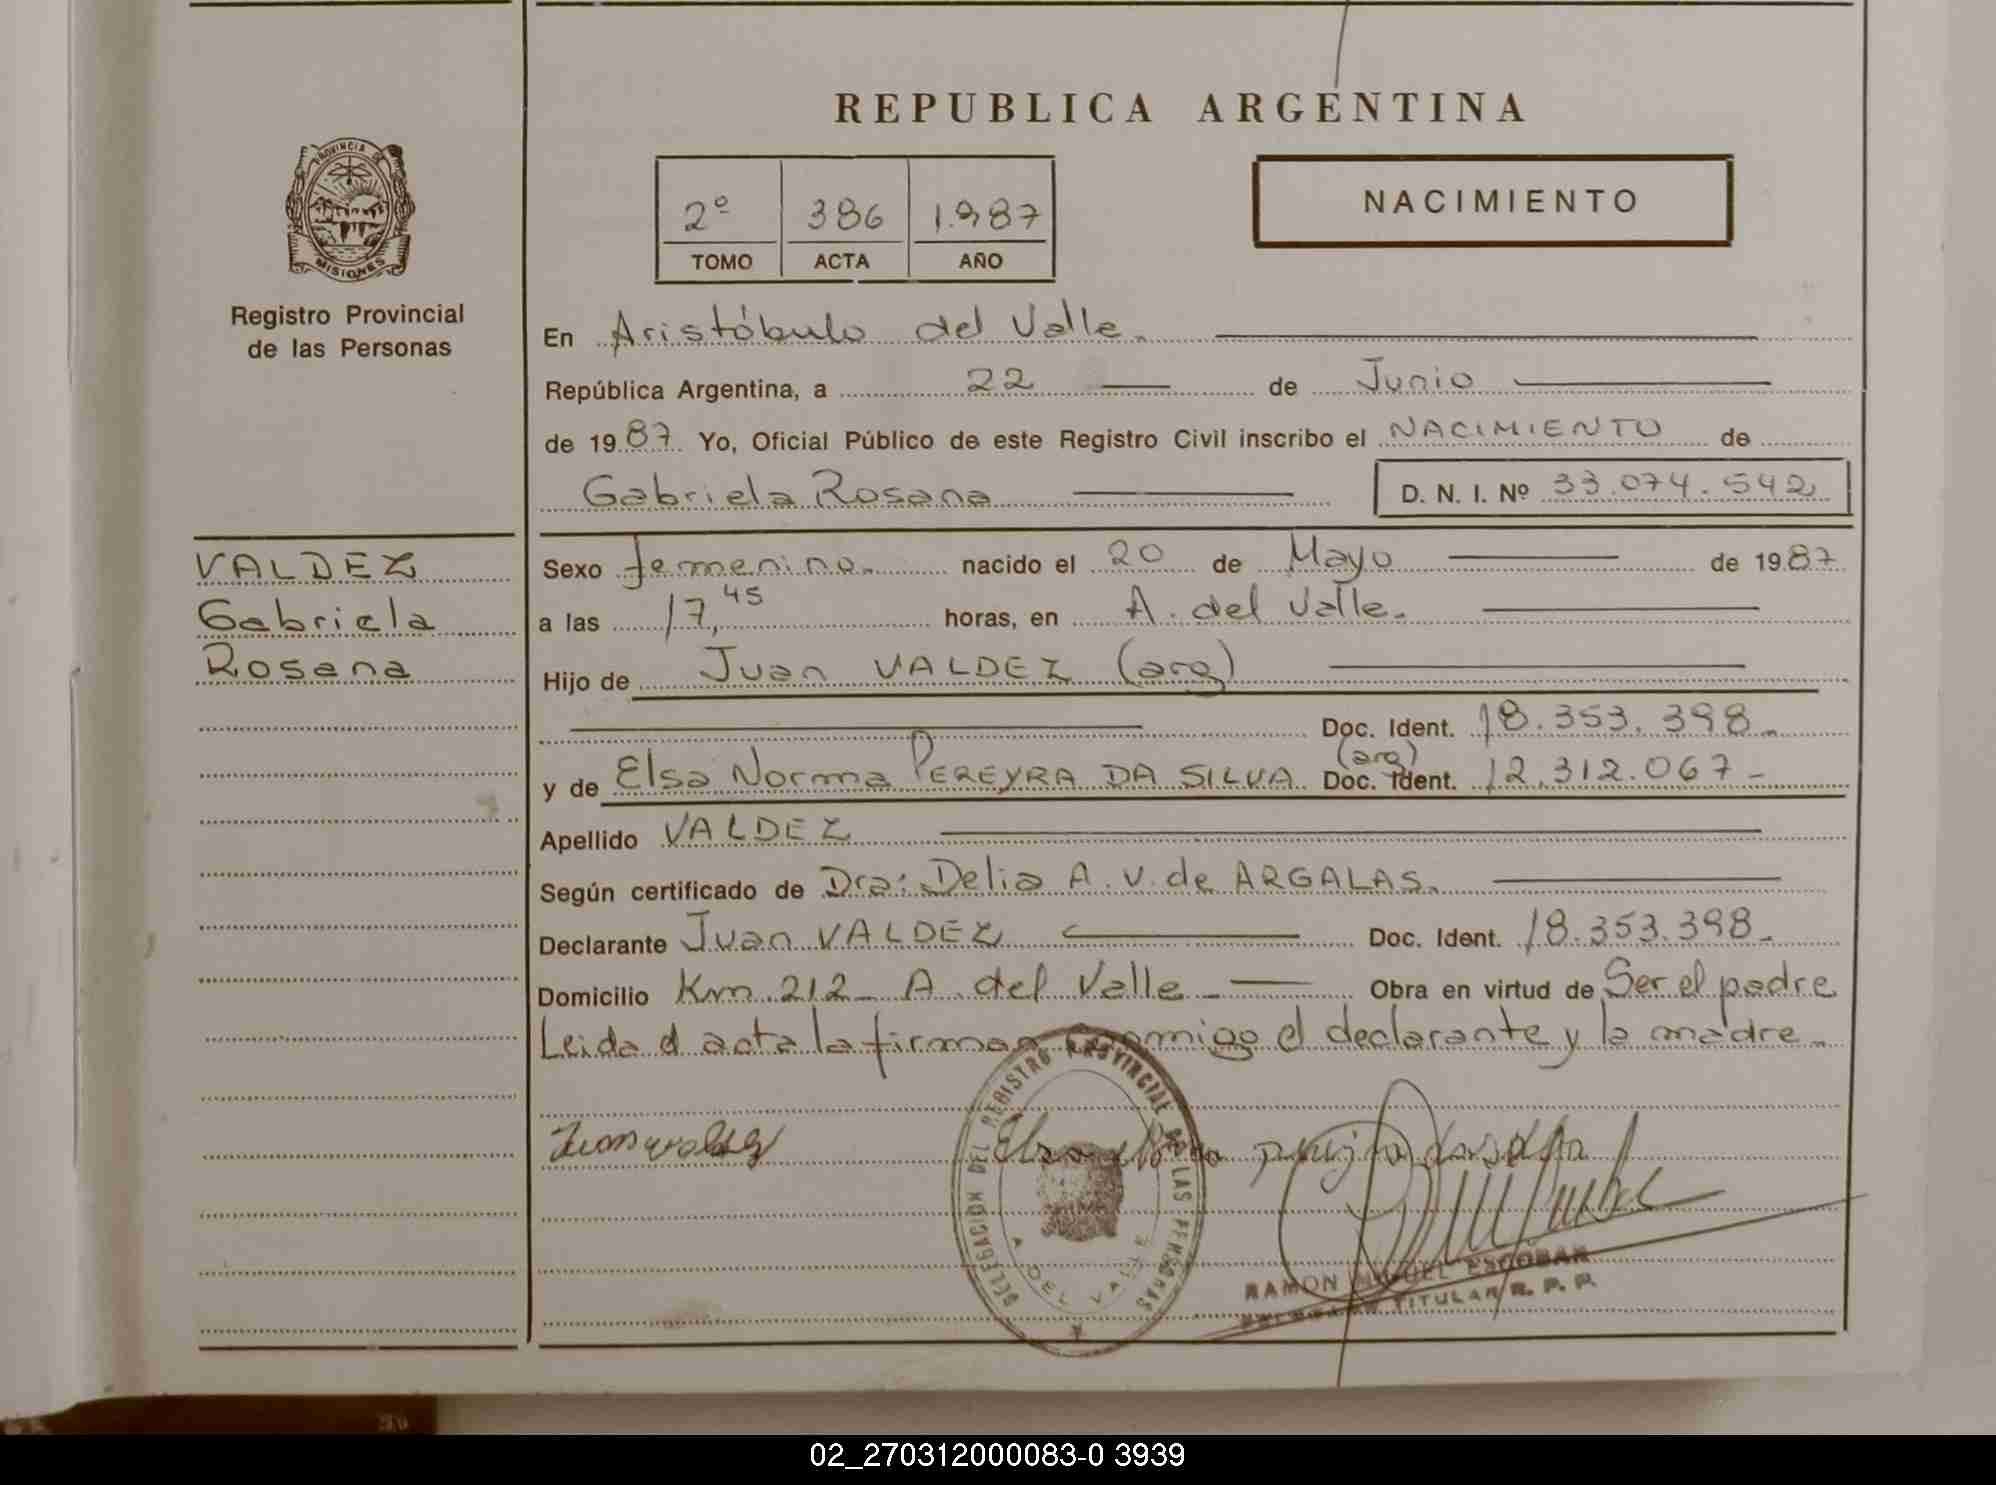 REPUBLICA ARGENTINA
PROVINCIA DE
MISIONES
Registro Provincial
de las Personas
2º 386 1.987
TOMO ACTA AÑO
NACIMIENTO
En Aristóbulo del Valle.
República Argentina, a 22 de Junio
de 1987 Yo, Oficial Público de este Registro Civil inscribo el NACIMIENTO de
Gabriela Rosana D. N. I. Nº 33.074.542
VALDEZ
Gabriela
Rosana
Sexo femenino. nacido el 20 de Mayo de 1987
a las 17,45 horas, en A. del Valle.
Hijo de Juan VALDEZ (arg)
Doc. Ident. 18.353.398.
y de Elsa Norma PEREYRA DA SILVA (arg) Doc. Ident. 12.312.067-
Apellido VALDEZ
Según certificado de Dra: Delia A. V. de ARGALAS.
Declarante Juan VALDEZ Doc. Ident. 18.353.398.
Domicilio Km 212- A. del Valle- Obra en virtud de Ser el padre
Leida el acta la firman conmigo el declarante y la madre.
Juan valdez Elsa
DELEGACION DEL REGISTRO PROVINCIAL DE LAS PERSONAS
A. DEL VALLE
RAMON MIGUEL ESCOBAR
TITULAR R. P. P.
02_270312000083-0 3939